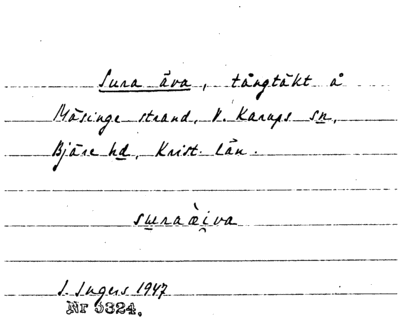 Sura äva, tångtäkt å
Mäsinge strand, V. Karups sn,
Bjäre hd, Krist. län.
suraäi̯va
I. Ingers 1947
Nr 6324.